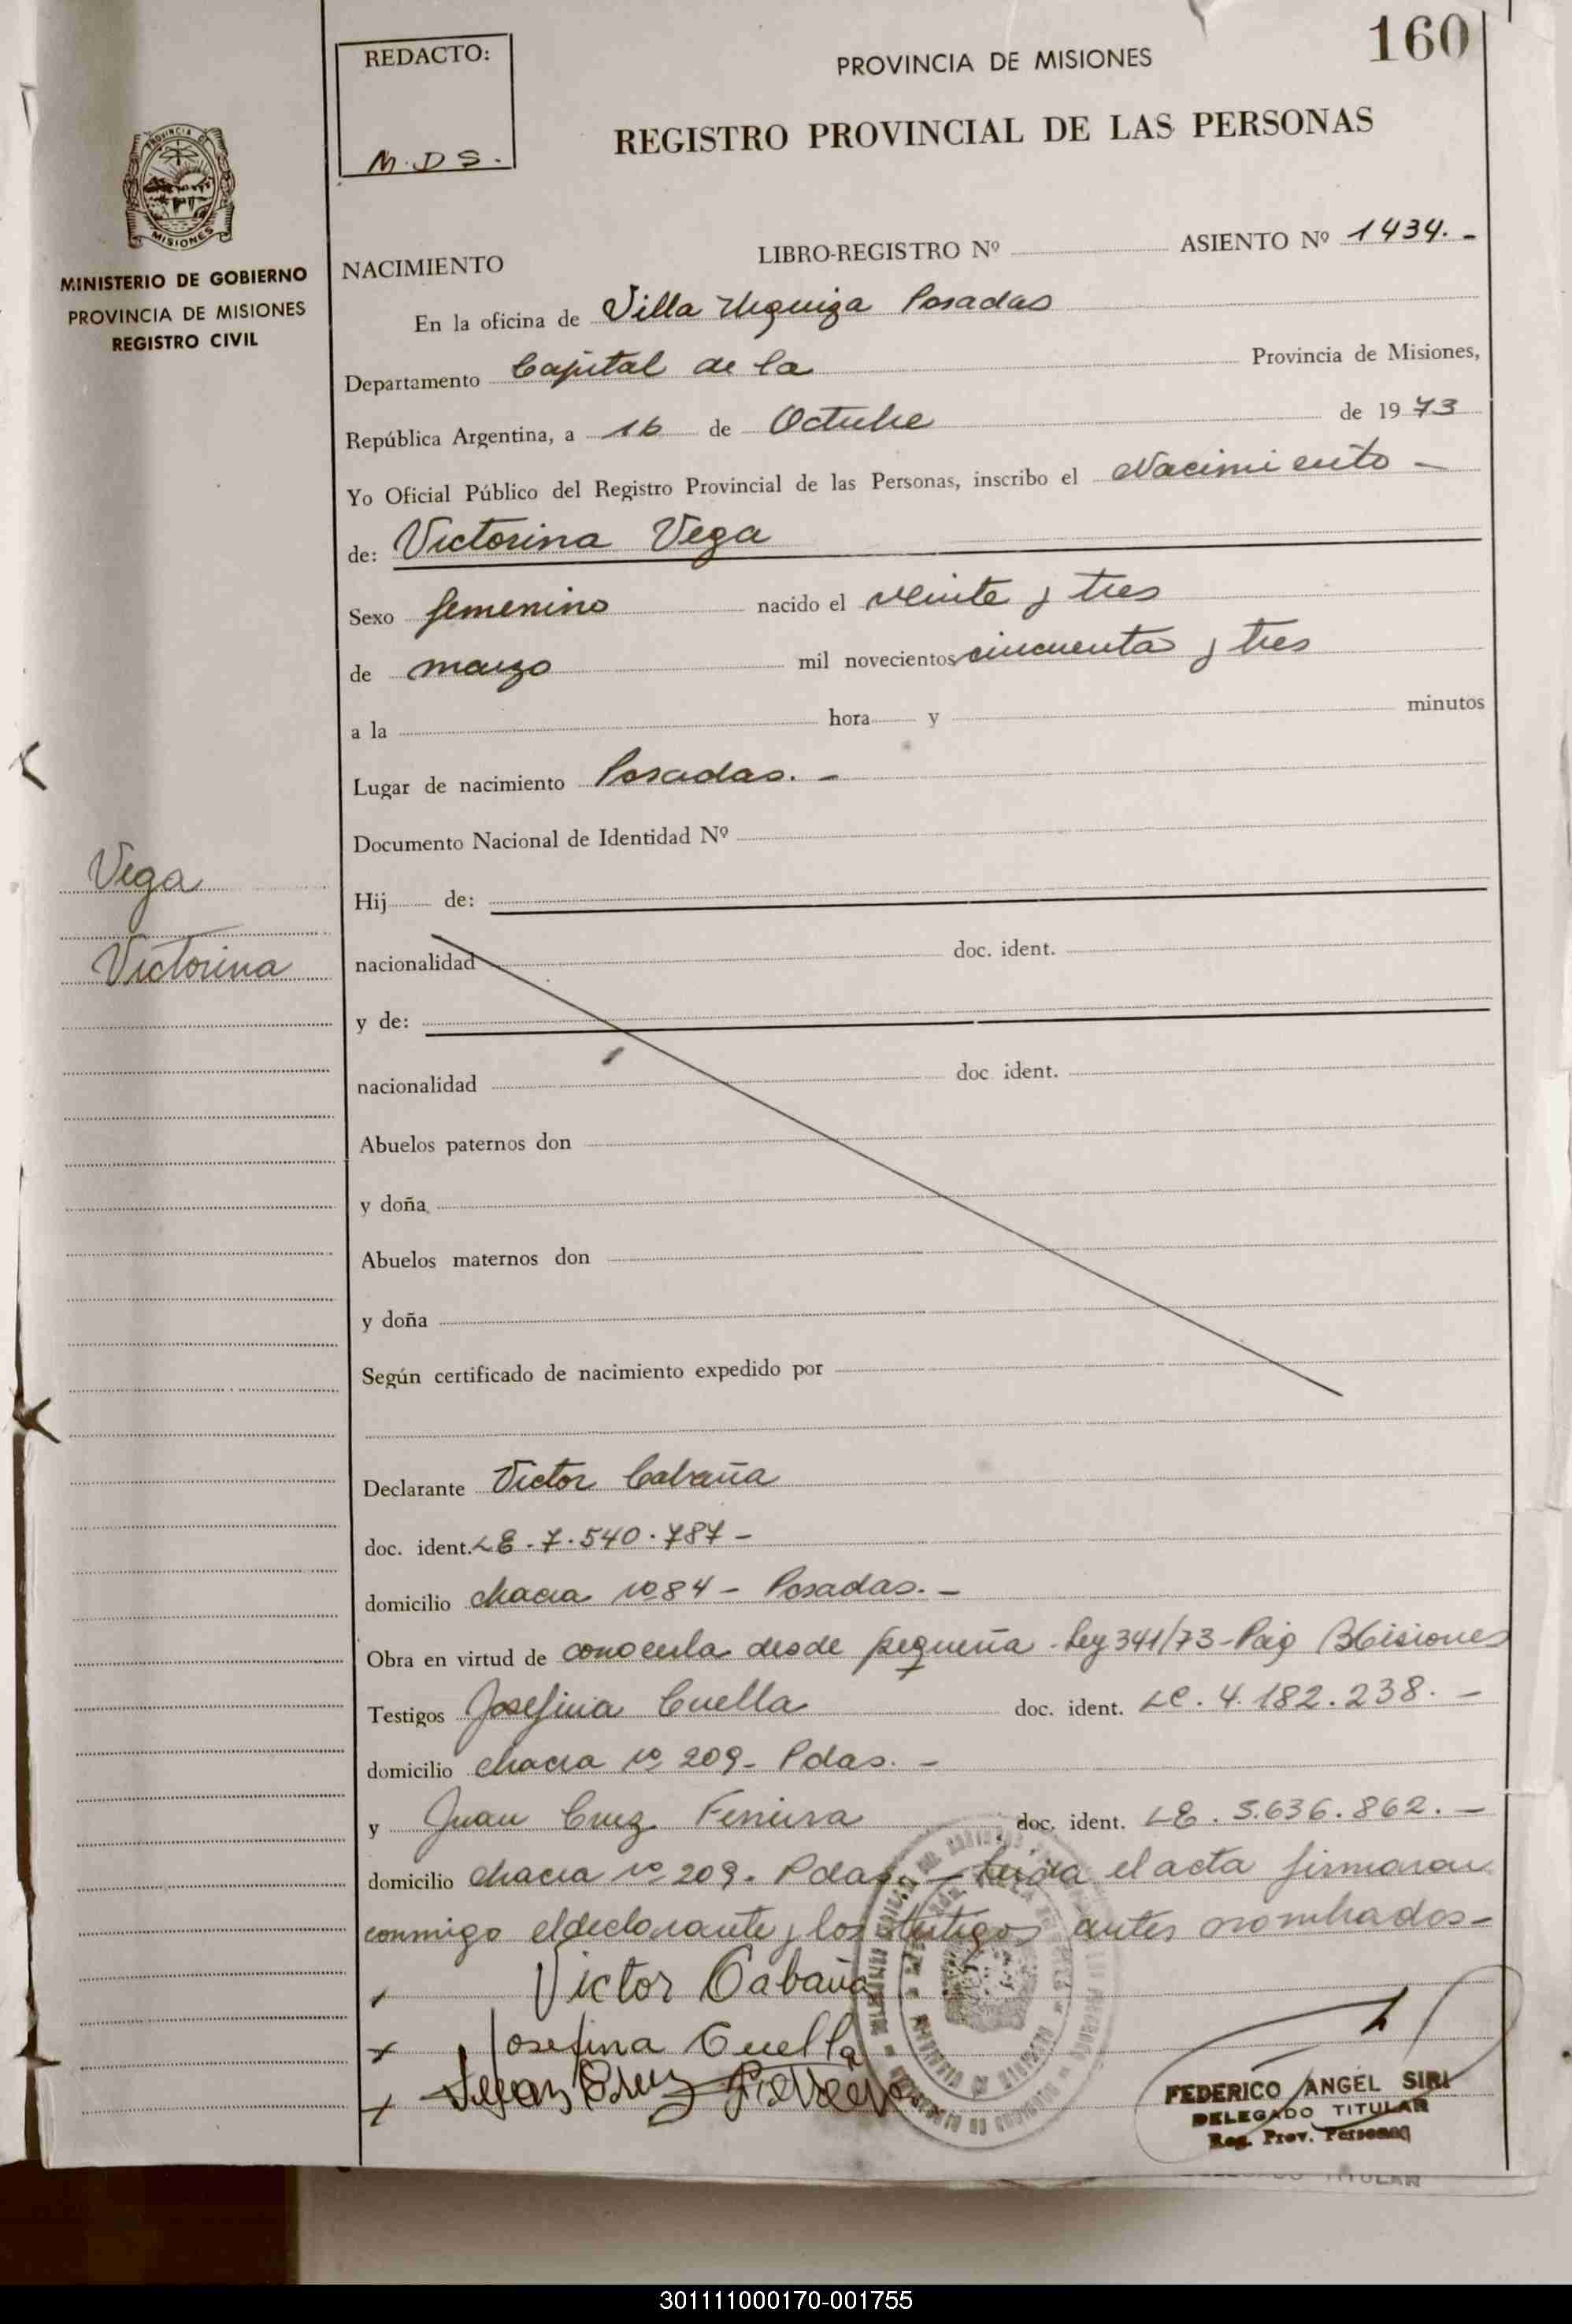 160
REDACTO:
M.D.S.
PROVINCIA DE MISIONES
REGISTRO PROVINCIAL DE LAS PERSONAS
PROVINCIA DE
MISIONES
MINISTERIO DE GOBIERNO
PROVINCIA DE MISIONES
REGISTRO CIVIL
NACIMIENTO LIBRO-REGISTRO Nº ASIENTO Nº 1434.-
En la oficina de Villa Urquiza Posadas
Departamento Capital de la Provincia de Misiones,
República Argentina, a 16 de Octubre de 1973
Yo Oficial Público del Registro Provincial de las Personas, inscribo el Nacimiento -
de: Victorina Vega
Sexo femenino nacido el veinte y tres
de marzo mil novecientos cincuenta y tres
a la hora y minutos
Lugar de nacimiento Posadas. -
Documento Nacional de Identidad Nº
Vega
Victorina
Hij de:
nacionalidad doc. ident.
y de:
nacionalidad doc ident.
Abuelos paternos don
y doña
Abuelos maternos don
y doña
Según certificado de nacimiento expedido por
Declarante Victor Cabaña
doc. ident. LE - 7.540.787 -
domicilio chacra Nº 84 - Posadas. -
Obra en virtud de conocerla desde pequeña - Ley 341/73 - Misiones
Testigos Josefina Cuella doc. ident. LC. 4.182.238. -
domicilio chacra Nº 209 - Pdas. -
y Juan Cruz Ferreira doc. ident. LE. 5.636.862. -
domicilio chacra Nº 209. Pdas. - Leida el acta firmaron
conmigo el declarante y los testigos antes nombrados -
Victor Cabaña
Josefina Cuella
Juan Cruz
FEDERICO ANGEL SIRI
DELEGADO TITULAR
Reg. Prov. Personas
TITULAR
301111000170-001755